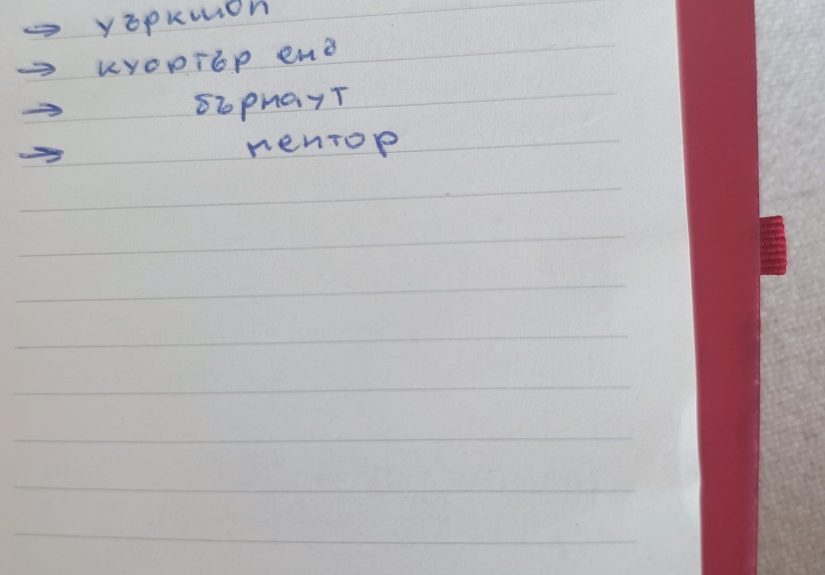 → уъркшоп
→ куортър енд
→ бърнаут
→ ментор